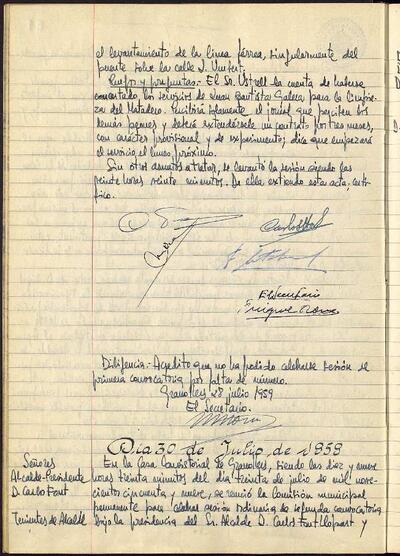 el levantamiento de la línea férrea, singularmente del
puente sobre la calle J. Umbert.
Ruegos y preguntas.- El Sr. Ustrell da cuenta de haberse
concertado los servicios de Juan Bautista Galera para la limpie-
za del Matadero. Percibirá solamente el jornal que perciben los
demás peones y deberá extendérsele un contrato por tres meses,
con carácter provisional y de experimento; dice que empezará
el servicio el lunes próximo.
Sin otros asuntos a tratar, se levantó la sesión siendo las
veinte horas veinte minutos. De ella extiendo esta acta, certi-
fico.
El Secretario
Diligencia.- Acredito que no ha podido celebrarse sesión de
primera convocatoria por falta de número.
Granollers 28 julio 1959
El Secretario.
Dia 30 de Julio, de 1959
Señores
Alcalde-Presidente
D. Carlos Font
Tenientes de Alcalde
En la Casa Consistorial de Granollers, siendo las diez y nueve
horas treinta minutos del día treinta de julio de mil nove-
cientos cincuenta y nueve, se reunió la Comisión municipal
permanente para celebrar sesión ordinaria de segunda convocatoria
bajo la presidencia del Sr. Alcalde D. Carlos Font Llopart y